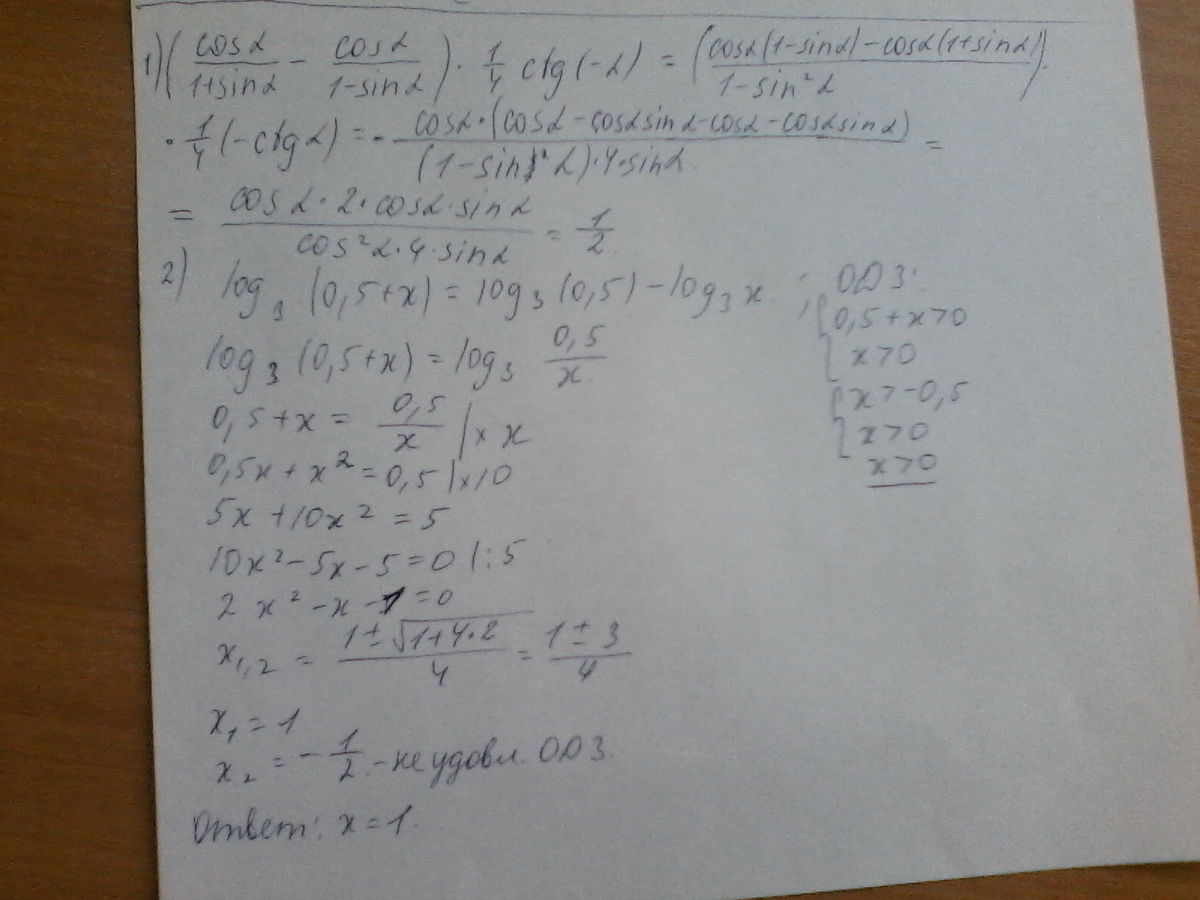 1) (cosα/(1+sinα) - cosα/(1-sinα)) · 1/4 ctg(-α) = (cosα(1-sinα)-cosα(1+sinα))/(1-sin²α)) ·
· 1/4 (-ctgα) = - cosα·(cosα-cosαsinα-cosα-cosαsinα)/((1-sin²α)·4·sinα) =
= cosα·2·cosα·sinα/(cos²α·4·sinα) = 1/2
2) log₃(0,5+x) = log₃(0,5) - log₃x. ;
log₃(0,5+x) = log₃ 0,5/x
0,5+x = 0,5/x |×x
0,5x+x² = 0,5 |×10
5x+10x² = 5
10x²-5x-5=0 |:5
2x²-x-1=0
x₁,₂ = (1±√(1+4·2))/4 = (1±3)/4
x₁ = 1
x₂ = -1/2 - не удовл. ОДЗ.
Ответ: x=1.
ОДЗ:
{0,5+x>0
x>0
{x>-0,5
x>0
x>0